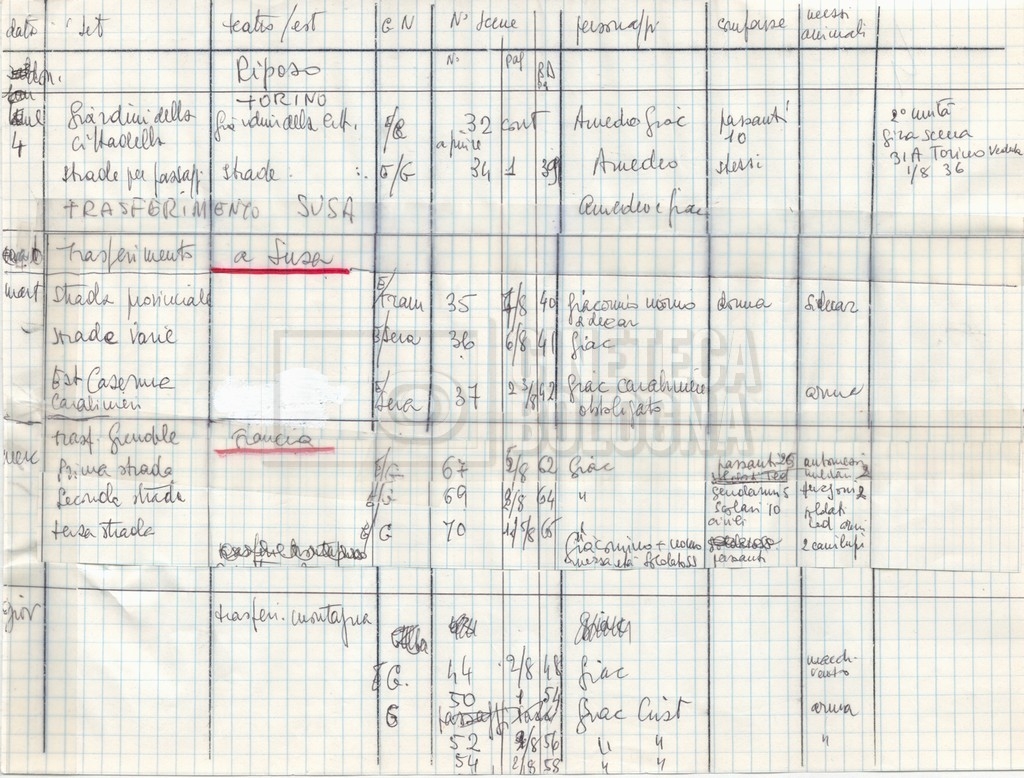 data set teatro/est G N N° Scene personaggi comparse mezzi
animali
N° pag
dom. Riposo
TORINO
lune Giardini della Giardini della citt. E/G 32 cont Amedeo Giac passanti 2° unità
4 cittadella aprire 10 gira scena
strade per passagg strade E/G 34 1 39 Amedeo stessi 31A Torino veduta
1/8 36
TRASFERIMENTO SUSA Amedeo e Giac
trasferimento a Susa
mart strada provinciale E/tram 35 1/8 40 Giacomino uomo donna sidecar
sidecar
strade varie E/sera 36 6/8 41 Giac
Est Caserma E/sera 37 2 3/8 42 Giac carabiniere arma
Carabinieri obbligato
merc trasf. Grenoble Francia
Prima strada E/G 67 2/8 62 Giac passanti 25 automezzi
militari 2
Seconda strada E/G 69 2/8 64 " gendarmi 5 furgoni 2
scolari 10 soldati
civili
terza strada E/G 70 1 5/8 65 "
Giacomino + uomo 2 camilapi
mezza età passanti
giov trasferi. montagna
E G. 44 2/8 48 Giac macch.
vento
50 1 54
G Giac Crist arma
52 2/8 56 " " "
54 2/8 58 " "
CINETECA
BOLOGNA